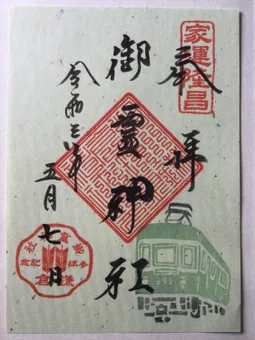 家運隆昌
奉拝
御霊神社
令和三年
五月七日